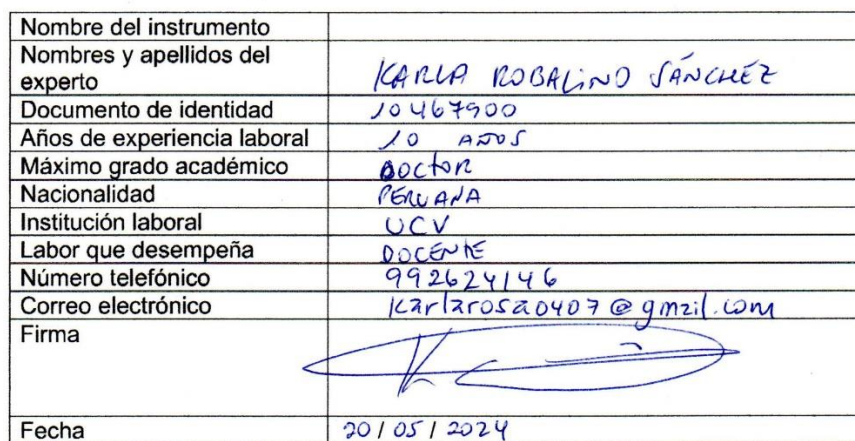 Nombre del instrumento
Nombres y apellidos del
experto KARLA ROBALINO SÁNCHEZ
Documento de identidad 10467900
Años de experiencia laboral 10 AÑOS
Máximo grado académico DOCTOR
Nacionalidad PERUANA
Institución laboral UCV
Labor que desempeña DOCENTE
Número telefónico 992624146
Correo electrónico karlarosa0407@gmail.com
Firma
Fecha 20/05/2024